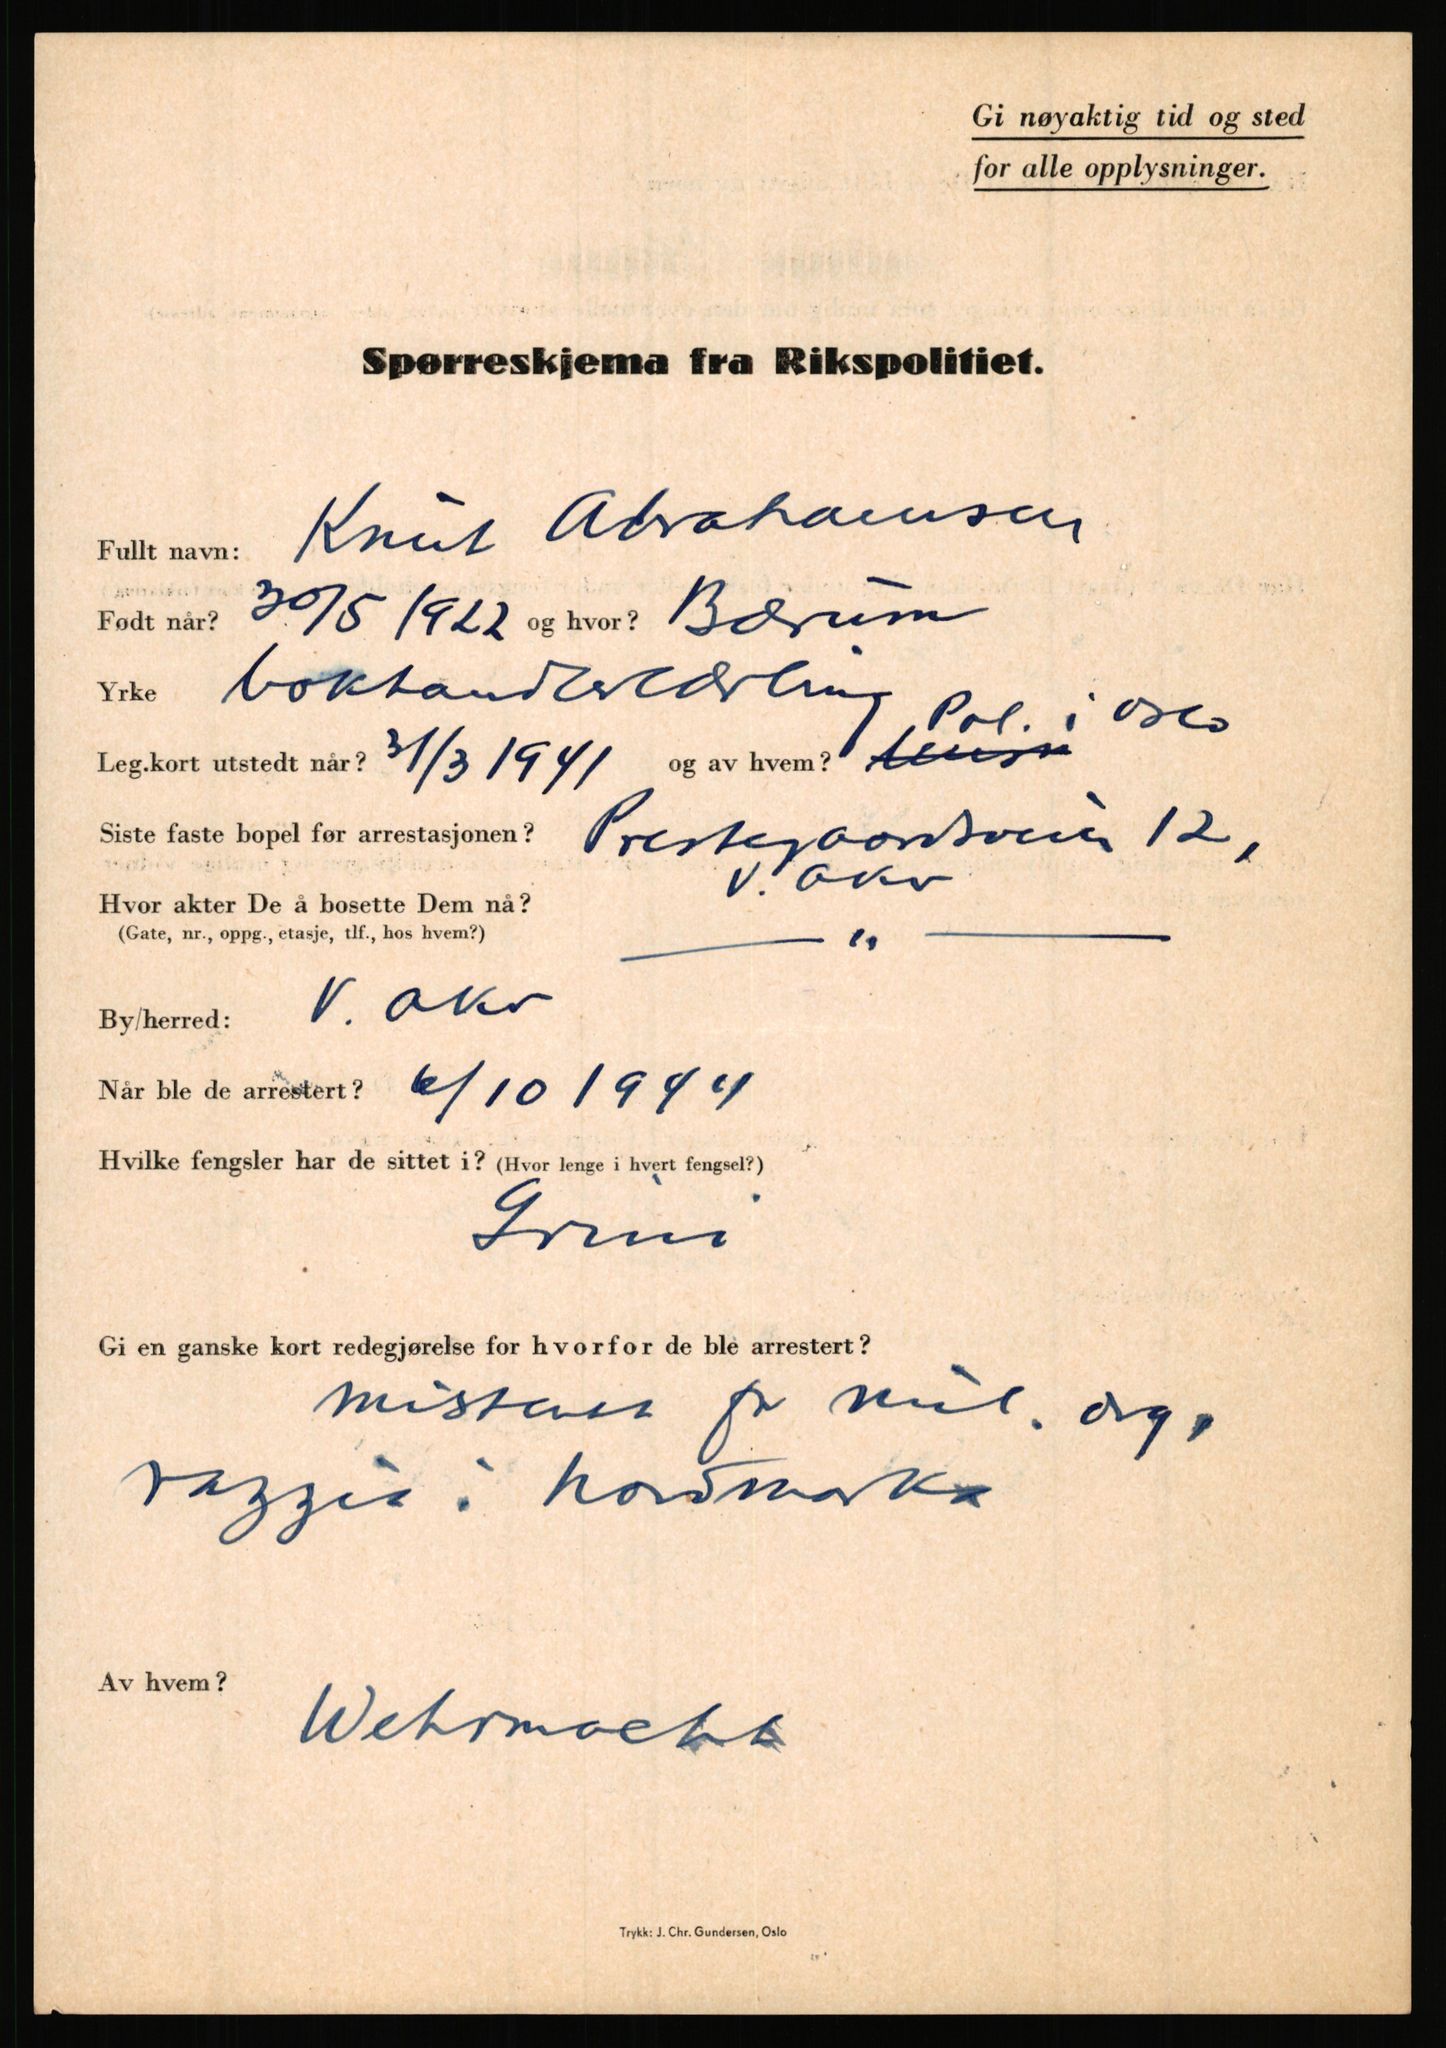 Gi nøyaktig tid og sted
for alle opplysninger.
Spørreskjema fra Rikspolitiet.
Fullt navn: Knut Abrahamsen
Født når? 30/5 1922 og hvor? Bærum
Yrke bokhandlerlærling
Leg.kort utstedt når? 31/3 1941 og av hvem? Pol. i Oslo
Siste faste bopel før arrestasjonen? Prestegaardsveien 12,
V. Aker
Hvor akter De å bosette Dem nå? — " —
(Gate, nr., oppg., etasje, tlf., hos hvem?)
By/herred: V. Aker
Når ble de arrestert? 6/10 1944
Hvilke fengsler har de sittet i? (Hvor lenge i hvert fengsel?)
Grini
Gi en ganske kort redegjørelse for hvorfor de ble arrestert?
mistenkt for mil. org.
razzia i Nordmarka
Av hvem? Wehrmacht
Trykk: J. Chr. Gundersen, Oslo